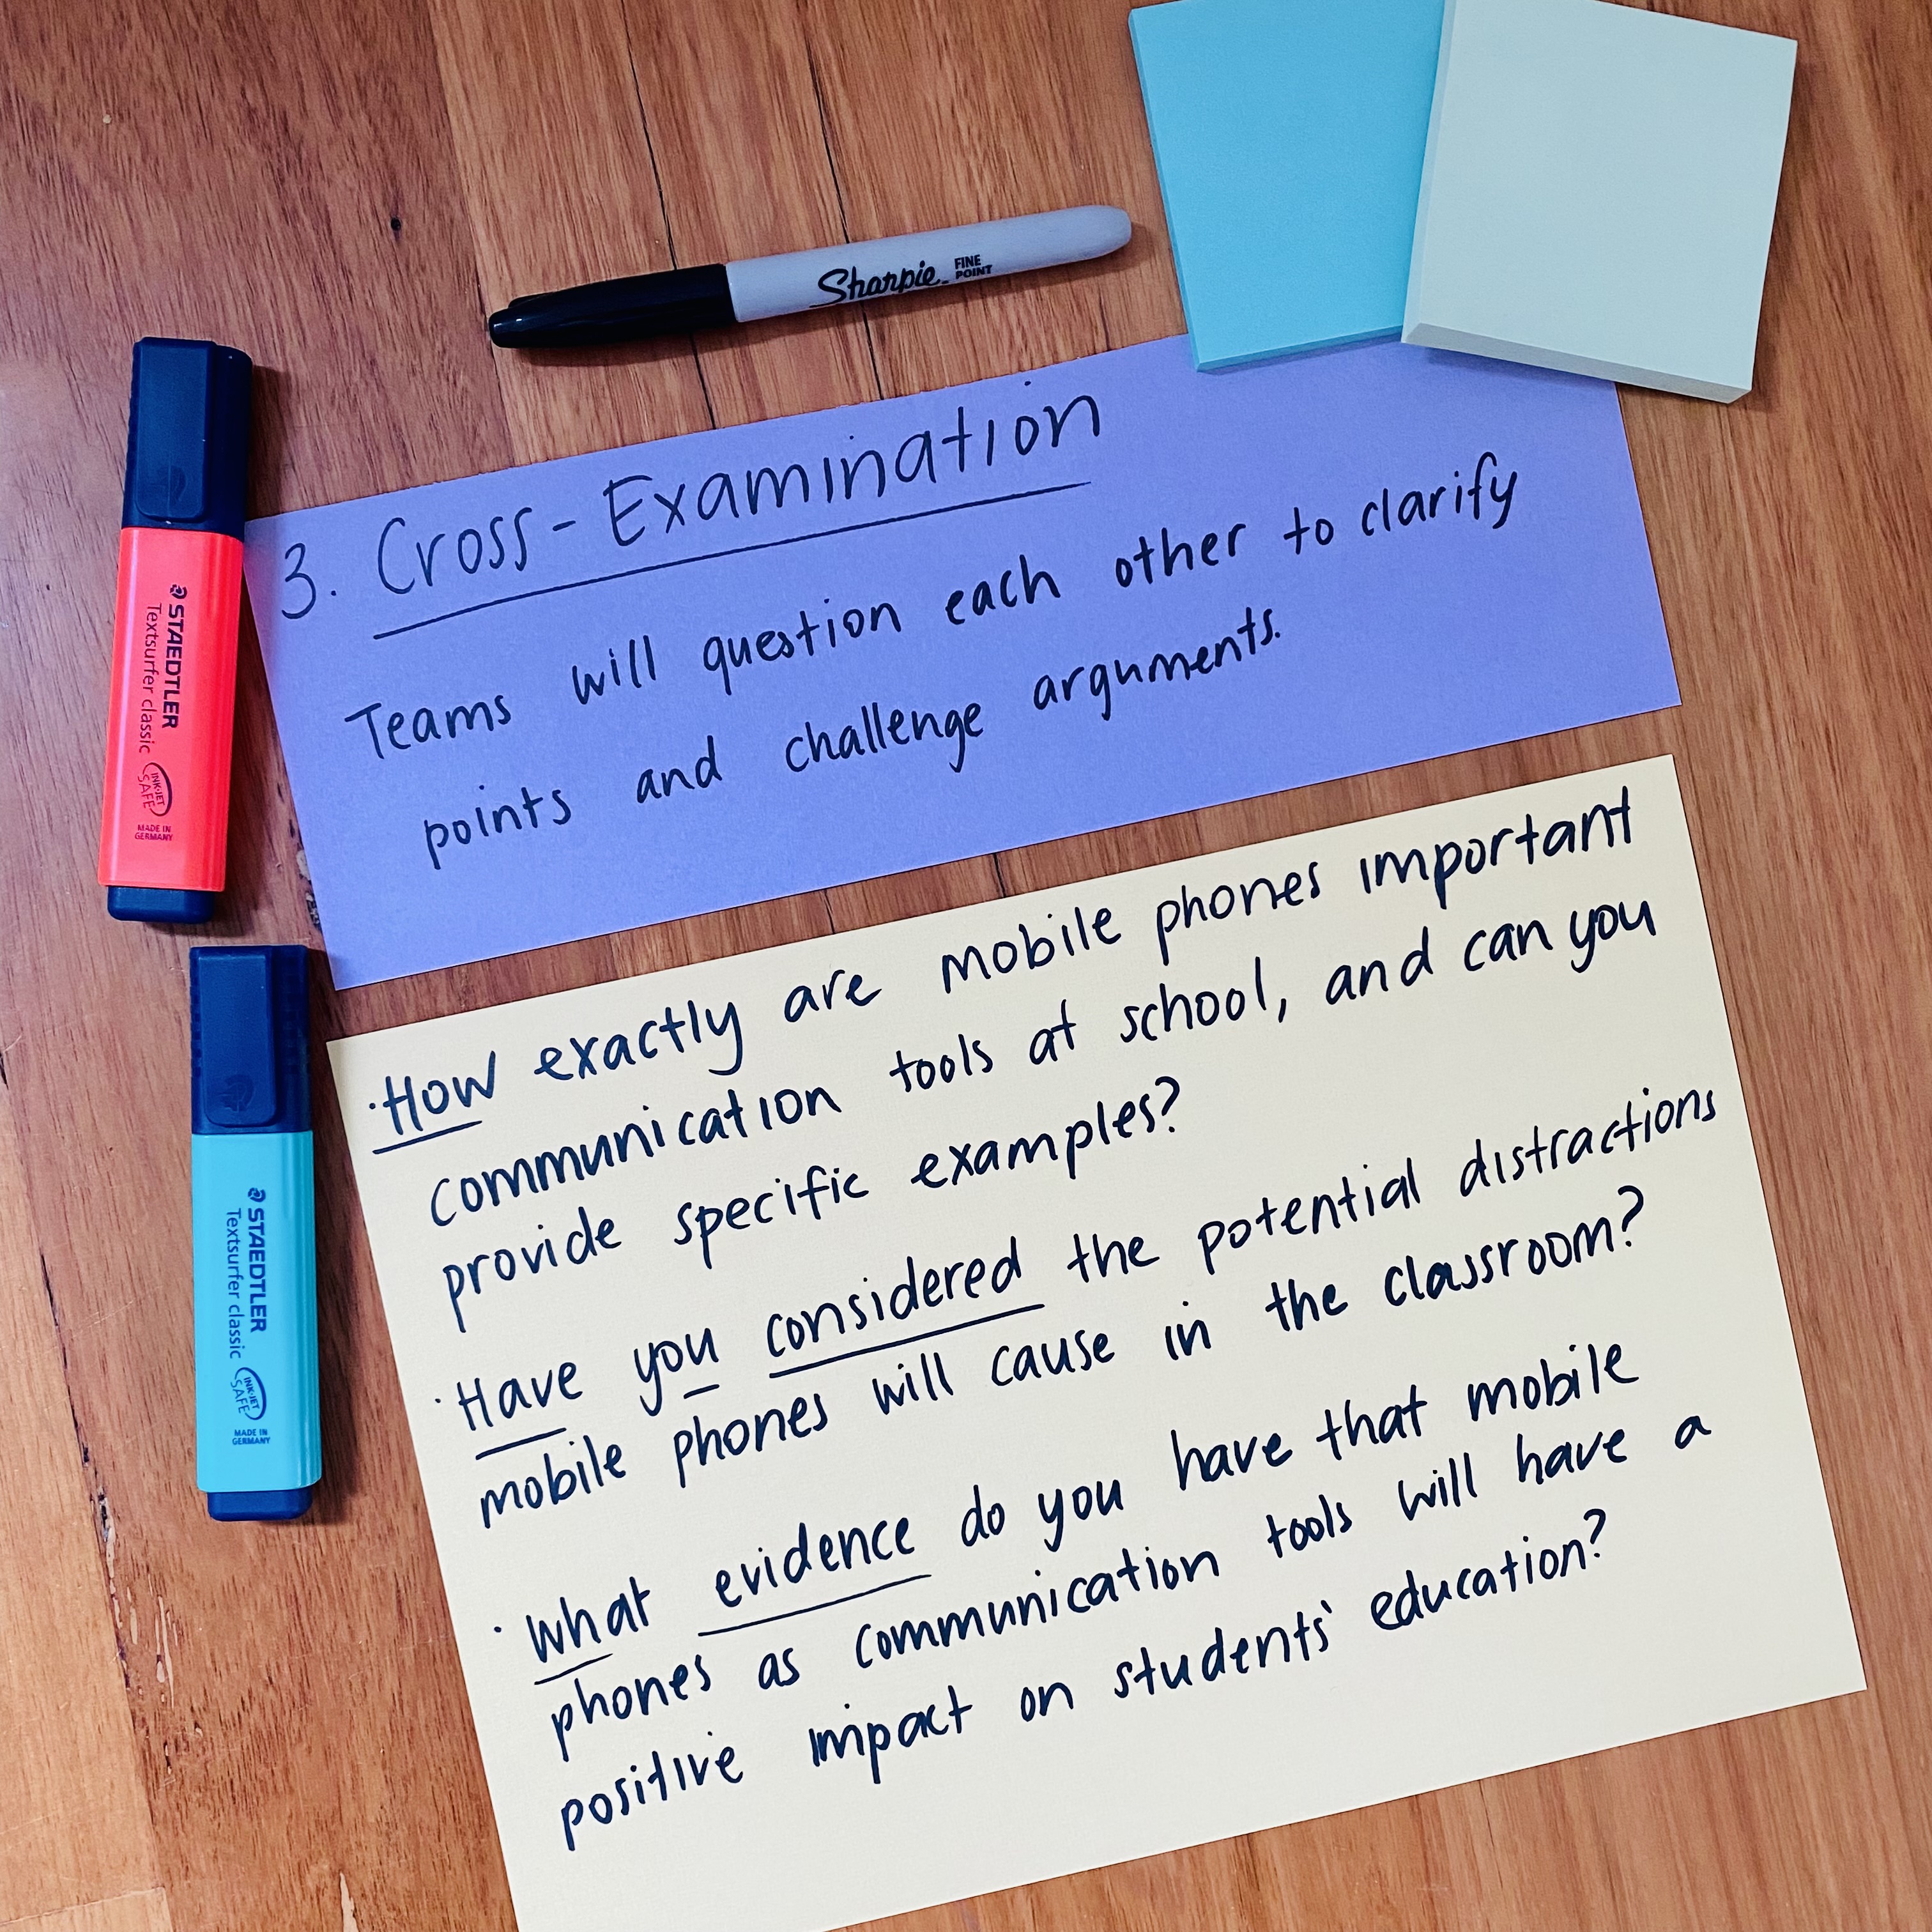 Sharpie. FINE
POINT
3. Cross-Examination
Teams will question each other to clarify
points and challenge arguments.
STAEDTLER
Textsurfer classic
INK-JET
SAFE
MADE IN
GERMANY
·How exactly are mobile phones important
communication tools at school, and can you
provide specific examples?
·Have you considered the potential distractions
mobile phones will cause in the classroom?
·What evidence do you have that mobile
phones as communication tools will have a
positive impact on students' education?
STAEDTLER
Textsurfer classic
INK-JET
SAFE
MADE IN
GERMANY